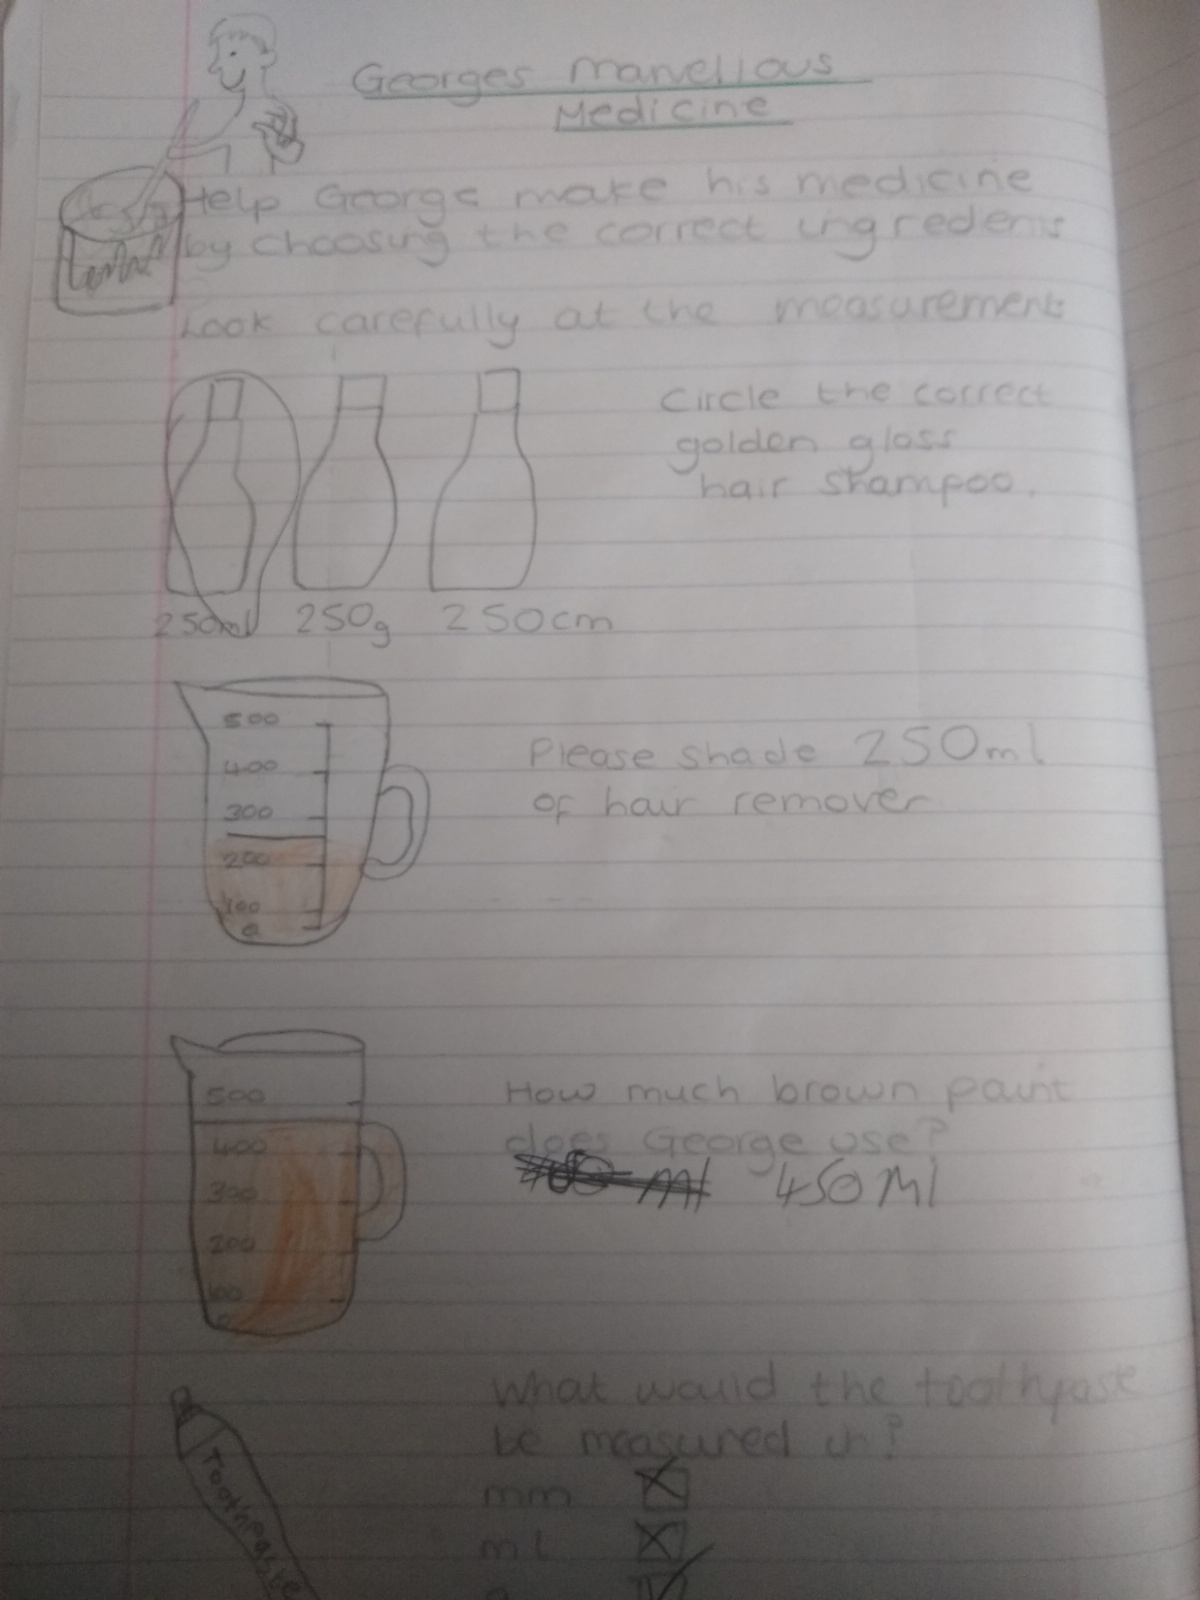 Georges marvellous
Medicine
Help George make his medicine
by choosing the correct ingredents
Look carefully at the measurements
Circle the correct
golden gloss
hair shampoo.
250ml 250g 250cm
500
400
300
200
100
0
Please shade 250ml
of hair remover
500
400
300
200
100
0
How much brown paint
does George use?
ml 450 ml
What would the toothpaste
be measured in?
mm
ml
Toothpaste